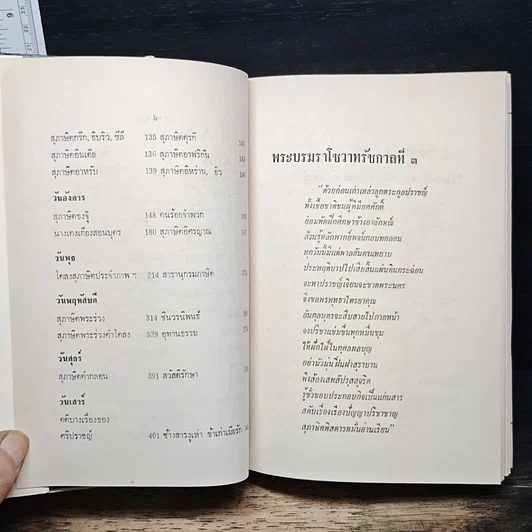 ๖
สุภาษิตกรีก, ฮิบริว, ซีลี 135 สุภาษิตตุรกี 141
สุภาษิตอินเดีย 136 สุภาษิตอาฟริกัน
สุภาษิตอาหรับ 139 สุภาษิตอิหร่าน, ยิว
วันอังคาร
สุภาษิตขงจู๊ 148 คนร้อยจำพวก
นางเคงเกียงสอนบุตร 180 สุภาษิตอิศรญาณ
วันพุธ
โคลงสุภาษิตประจำภาพ ฯ 214 สารานุกรมภาษิต
วันพฤหัสบดี
สุภาษิตพระร่วง 314 ชินวรนิพนธ์
สุภาษิตพระร่วงคำโคลง 339 อุทานธรรม
วันศุกร์
สุภาษิตคำกลอน 391 สวัสดิรักษา
วันเสาร์
คติบางเรื่องของ
ศรีปราชญ์ 401 ช้างสารงูเห่า ข้าเก่าเมียรัก
พระบรมราโชวาทรัชกาลที่ ๓
"ด้วยก่อนเก่าเหล่าลูกตระกูลปราชญ์
ทั้งเชื้อชาติชนผู้ดีมียศศักดิ์
ย่อมหัดฝึกศึกษาข้างอาลักษณ์
ล้วนรู้หลักพากย์พจน์กลบทกลอน
ทุกวันนี้มีแต่พาลสันดานหยาบ
ประพฤติบาปไปเสียสิ้นแผ่นดินกระฉ่อน
จะหาปราชญ์เจียนจะขาดพระนคร
จึงขอพรพุทธาไตรยาคุณ
อันกุลบุตรจะสืบสายไปภายหน้า
จงปรีชาแช่มชื่นทุกหมื่นขุน
ให้ฝักใฝ่ในกุศลผลบุญ
อย่ามัวมุ่นฝิ่นฝาสุราบาน
พึงส้องเสพสัปรุสสุจริต
รู้ชั่วชอบประกอบกิจเป็นแก่นสาร
สดับเรื่องเรืองปัญญาปรีชาชาญ
สุภาษิตพิสดารหมั่นอ่านเรียน"